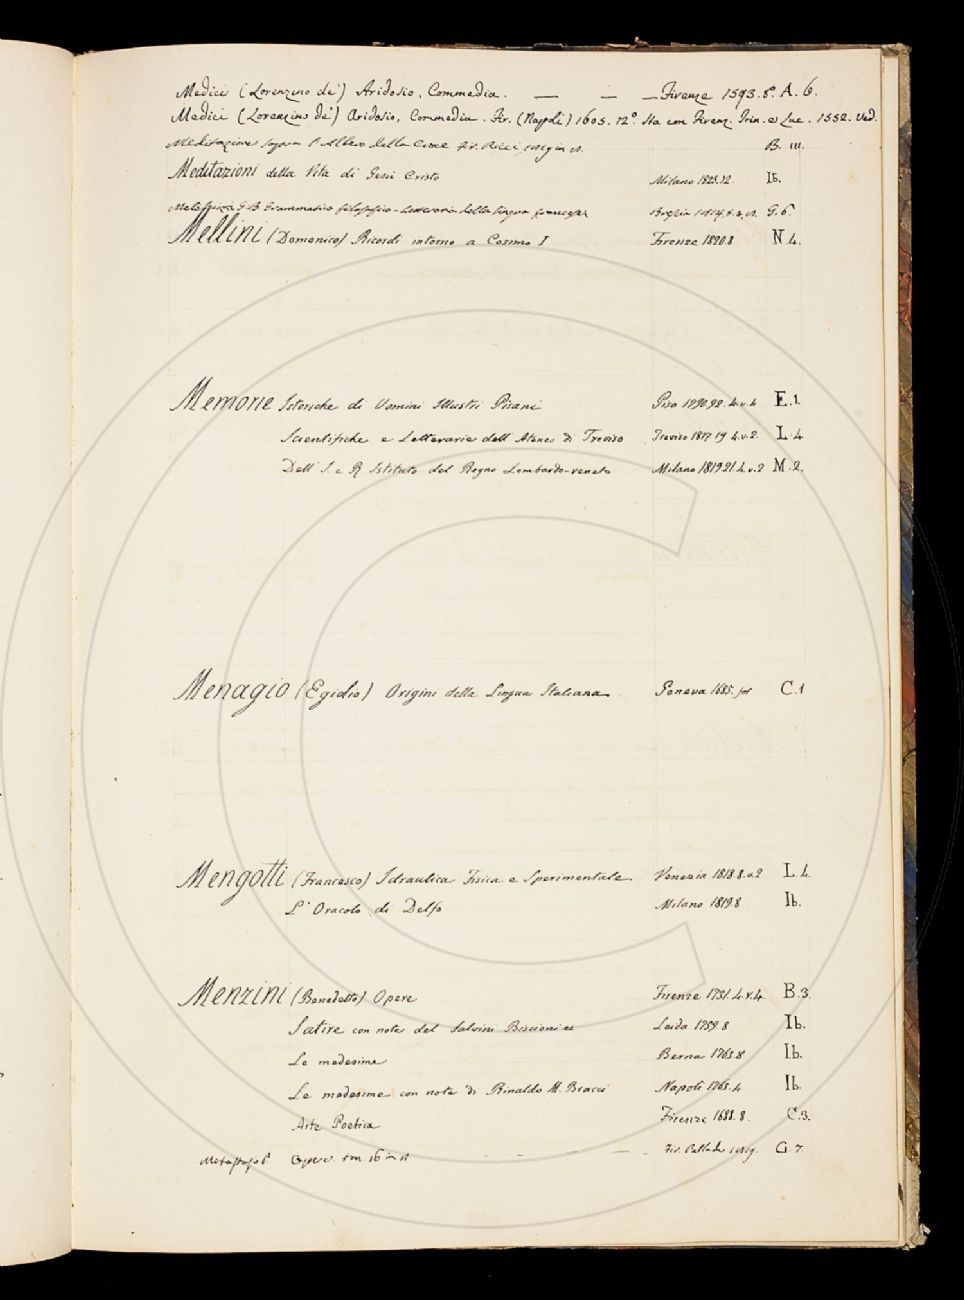 Medici (Lorenzino de') Aridosio, Commedia. — — — Firenze 1593. 8°. A. 6.
Medici (Lorenzino de') Aridosio, Commedia. Fir. (Napoli) 1605. 12° Sta con Firenz. Ved.
Meditazione sopra l'Albero della Croce Fir. Ricci B. III.
Meditazioni della Vita di Gesù Cristo Milano 1823.12. Ib.
G. B. Grammatica filosofico-letteraria della lingua francese Brescia G. 6.
Mellini (Domenico) Ricordi intorno a Cosimo I Firenze 1820.8 N. 4.
Memorie Istoriche di Uomini Illustri Pisani Pisa 1790.92. 4. v. 4 E. 1.
Scientifiche e Letterarie dell'Ateneo di Treviso Treviso 1817.19. 4. v. 2. L. 4
Dell'I. e R. Istituto del Regno Lombardo-veneto Milano 1819.21. 4. v. 2 M. 2.
Menagio (Egidio) Origini della Lingua Italiana Geneva 1685. fol C. 1
Mengotti (Francesco) Idraulica Fisica e Sperimentale Venezia 1818. 8. v. 2 L. 4.
L'Oracolo di Delfo Milano 1819.8 Ib.
Menzini (Benedetto) Opere Firenze 1731. 4. v. 4 B. 3.
Satire con note del Salvini Biscioni ec Leida 1759. 8 Ib.
Le medesime Berna 1763.8 Ib.
Le medesime con note di Rinaldo M. Bracci Napoli 1763. 4 Ib.
Arte Poetica Firenze 1688. 8. C. 3.
Opere. tm 16 in — — — — Fir. G. 7.